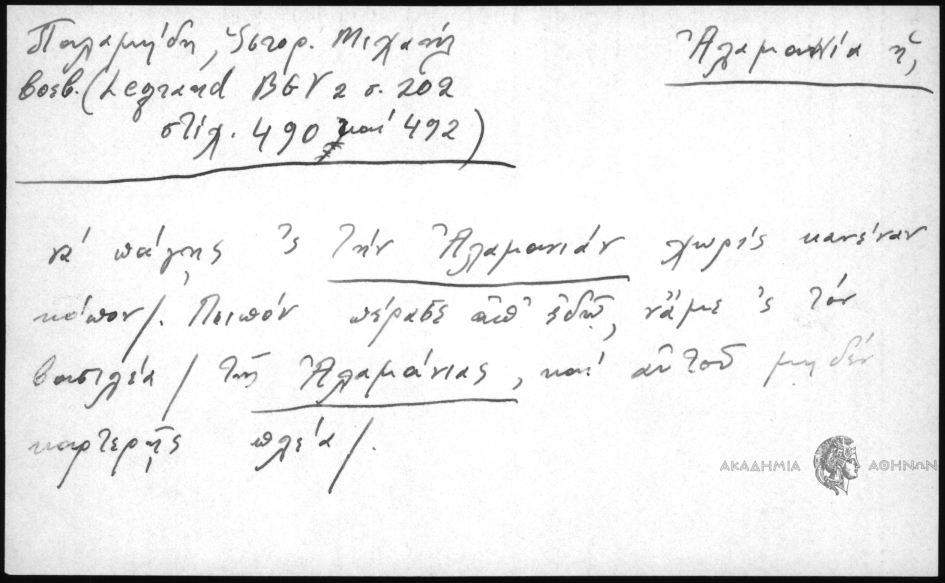 Παλαμήδη, Ἱστορ. Μιχαήλ
βοεβ. (Legrand BGV 2 σ. 202
στίχ. 490 καί 492)
Ἀλαμανία ἡ,
νά πάγης 'ς τήν Ἀλαμανιάν χωρίς κανέναν
κόπον/. Λοιπόν πέρασε ἀπ' ἐδῶ, νἄμε 'ς τόν
βασιλέα / τῆς Ἀλαμάνιας, καί αὐτοῦ μηδέν
καρτερῇς πλειά /.
ΑΚΑΔΗΜΙΑ ΑΘΗΝΩΝ